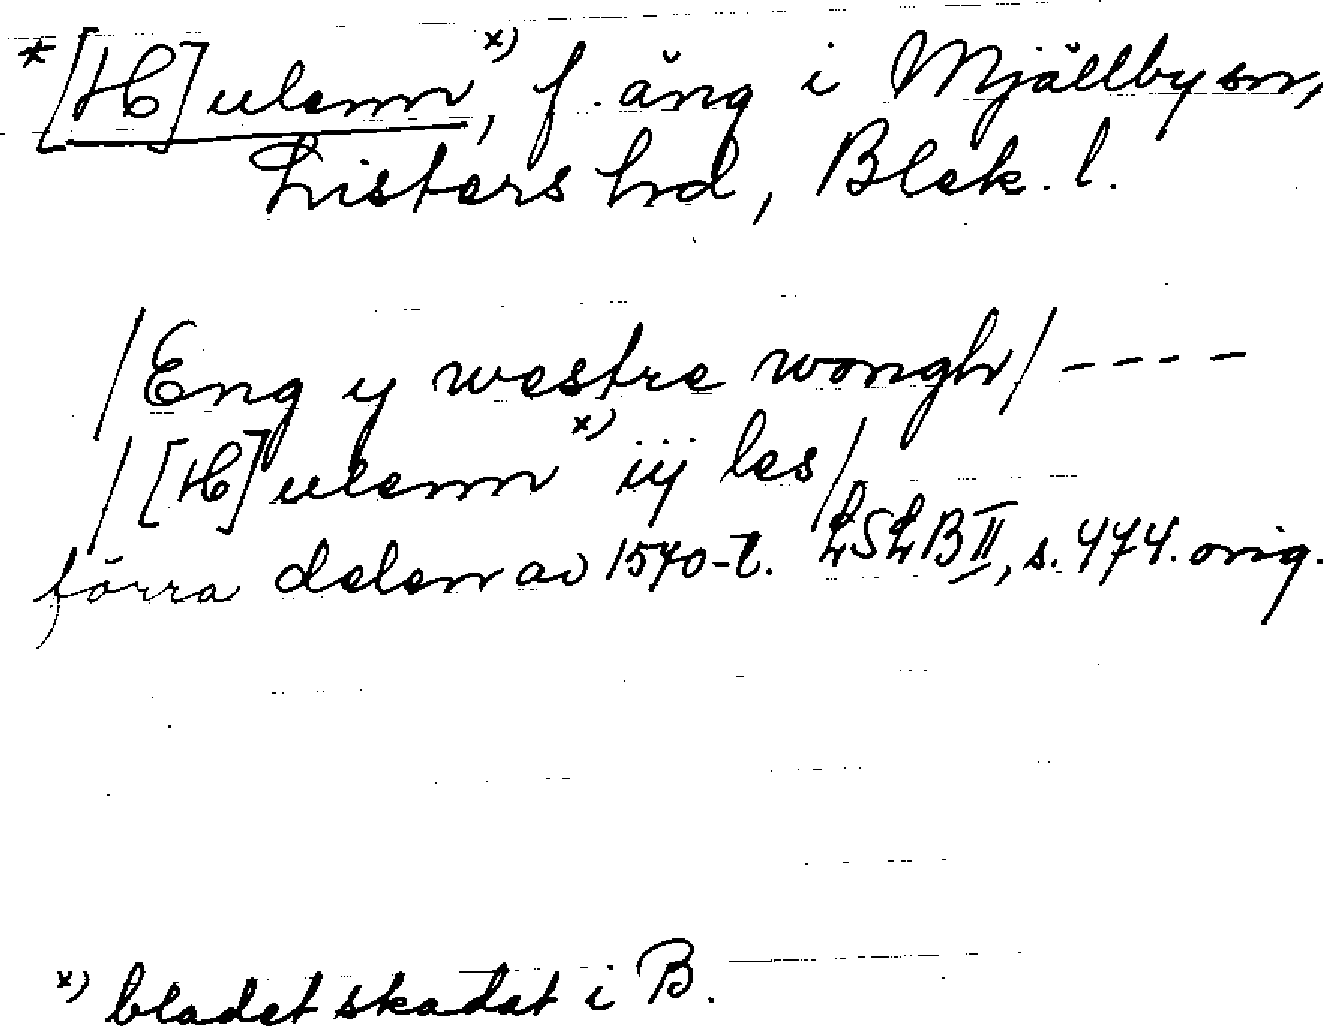 *[H]ulenn x), f. äng i Mjällby sn,
Listers hd, Blek. l.
/Eng y westre wongh/ ----
/[H]ulenn x) iij les/
förra delen av 1570-t. LSLB II, s. 474. orig.
x) bladet skadat i B.